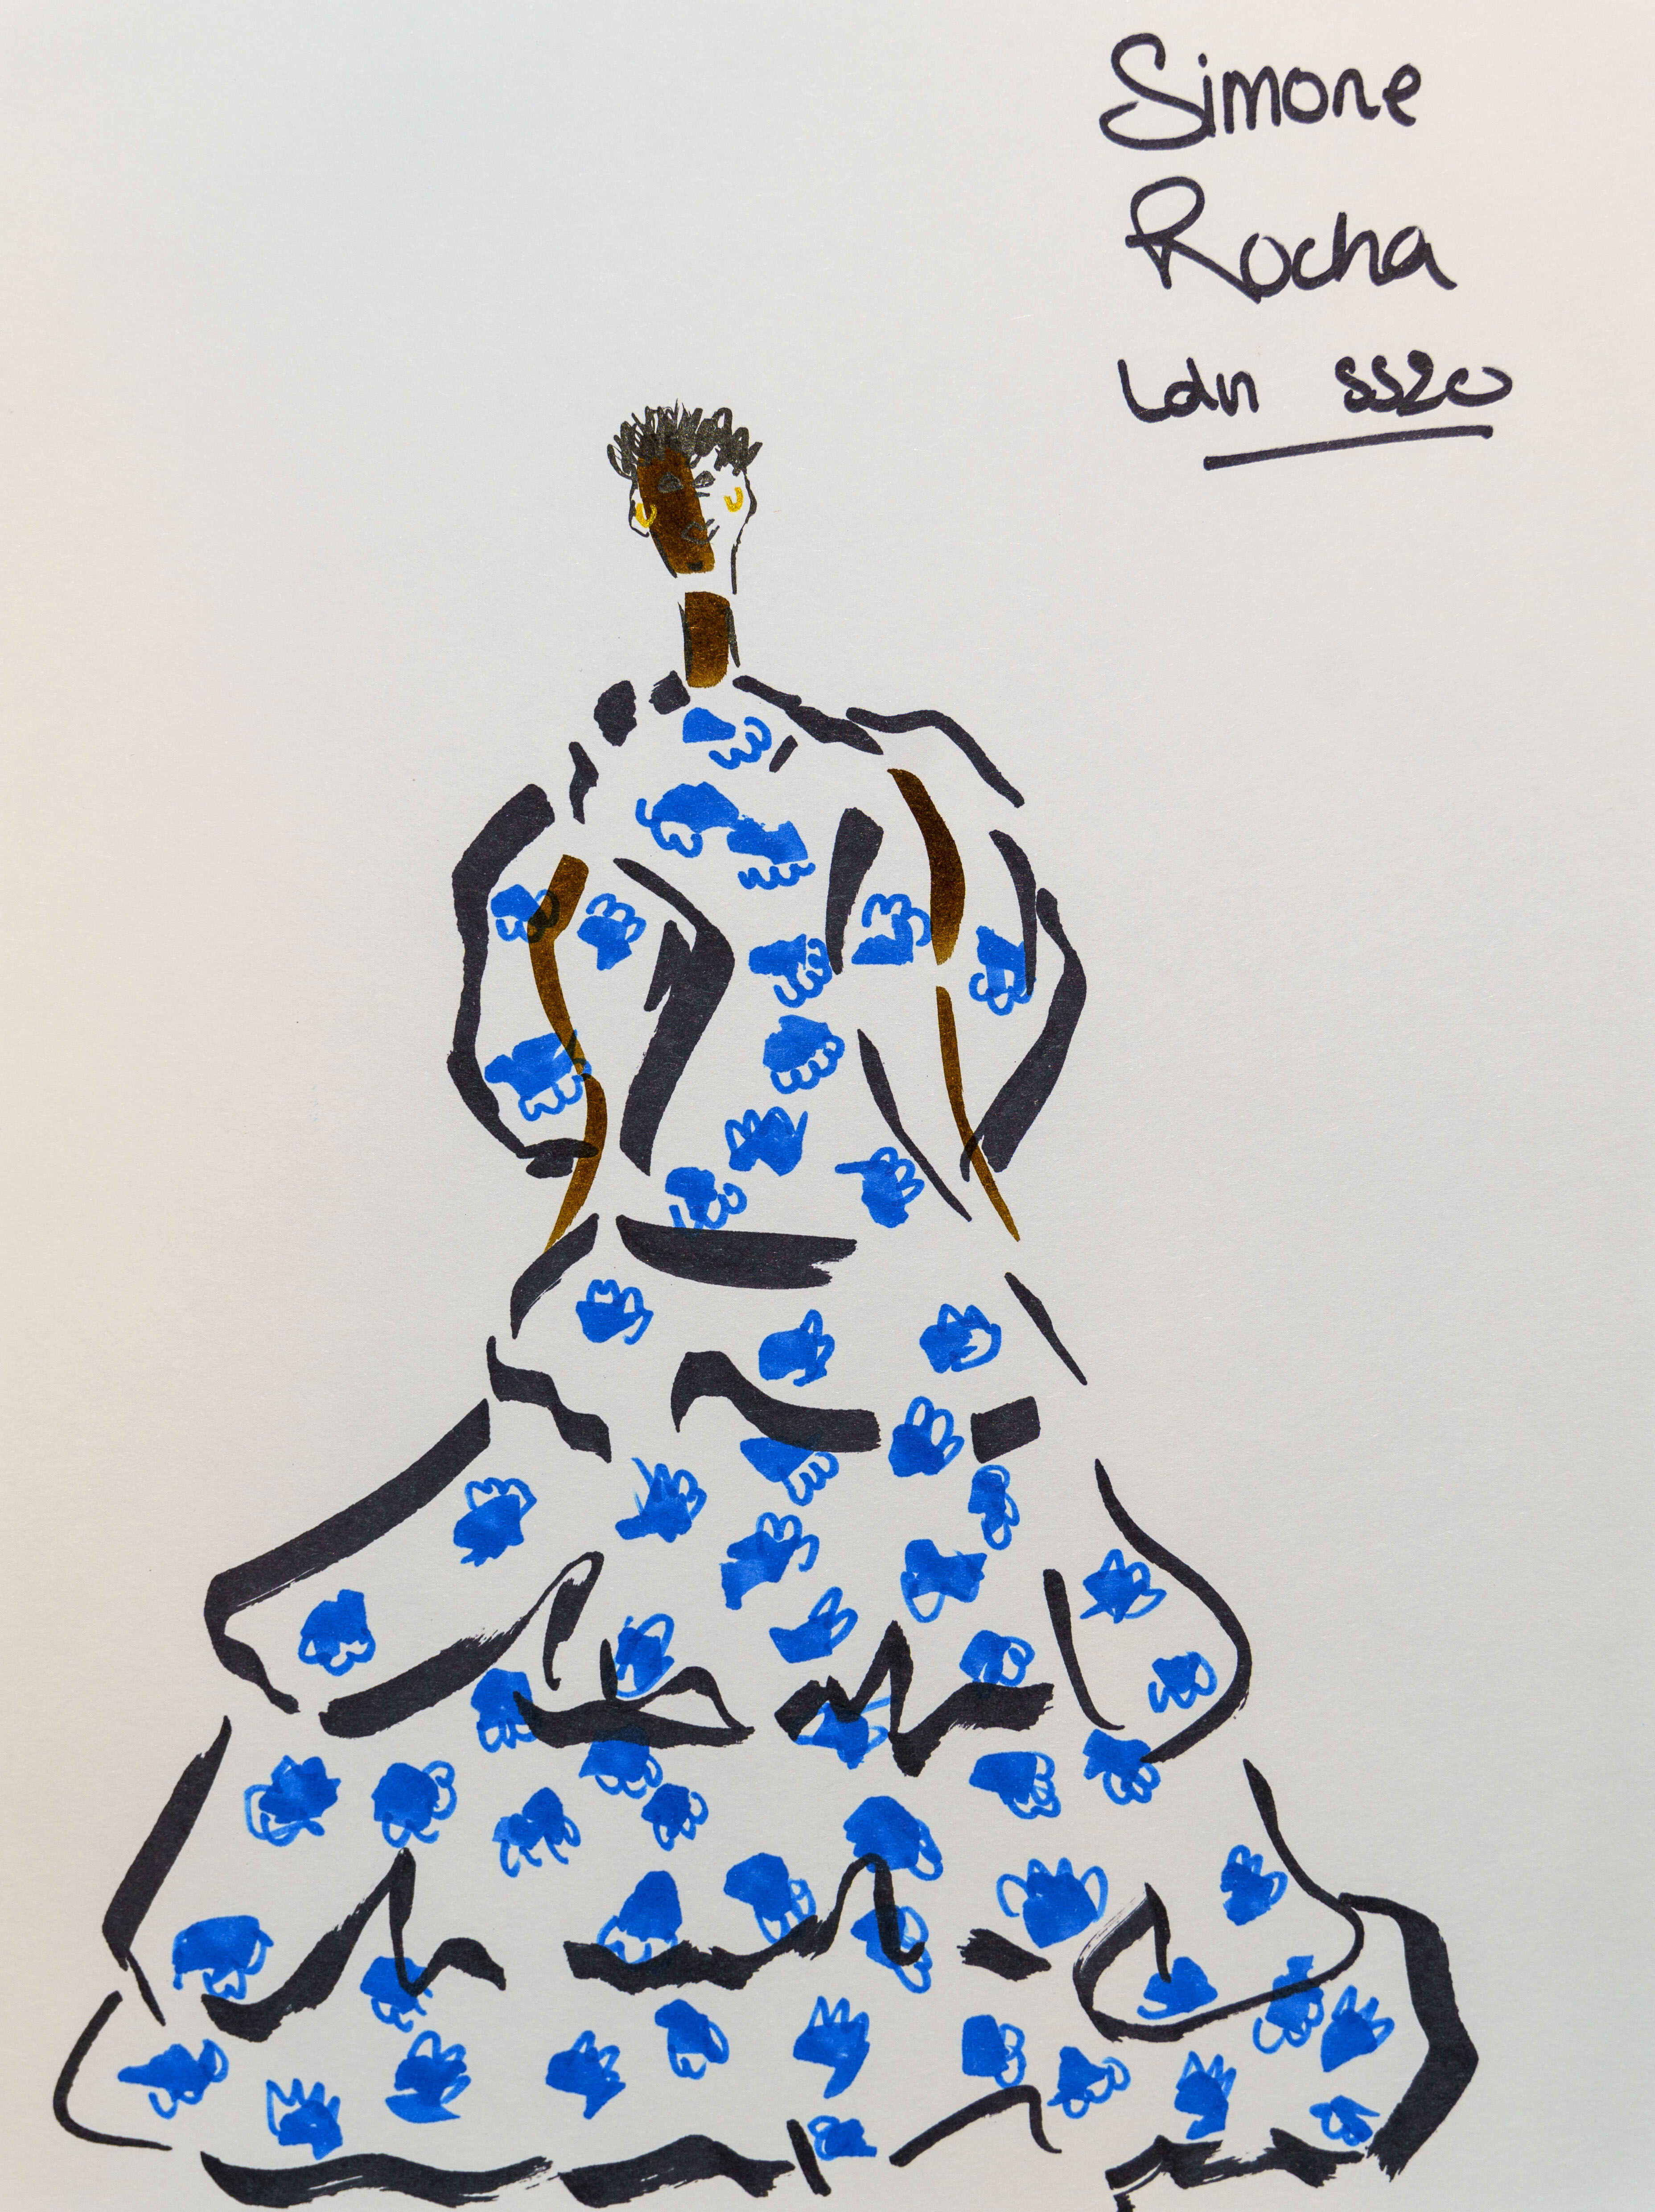 Simone
Rocha
Ldn SS20